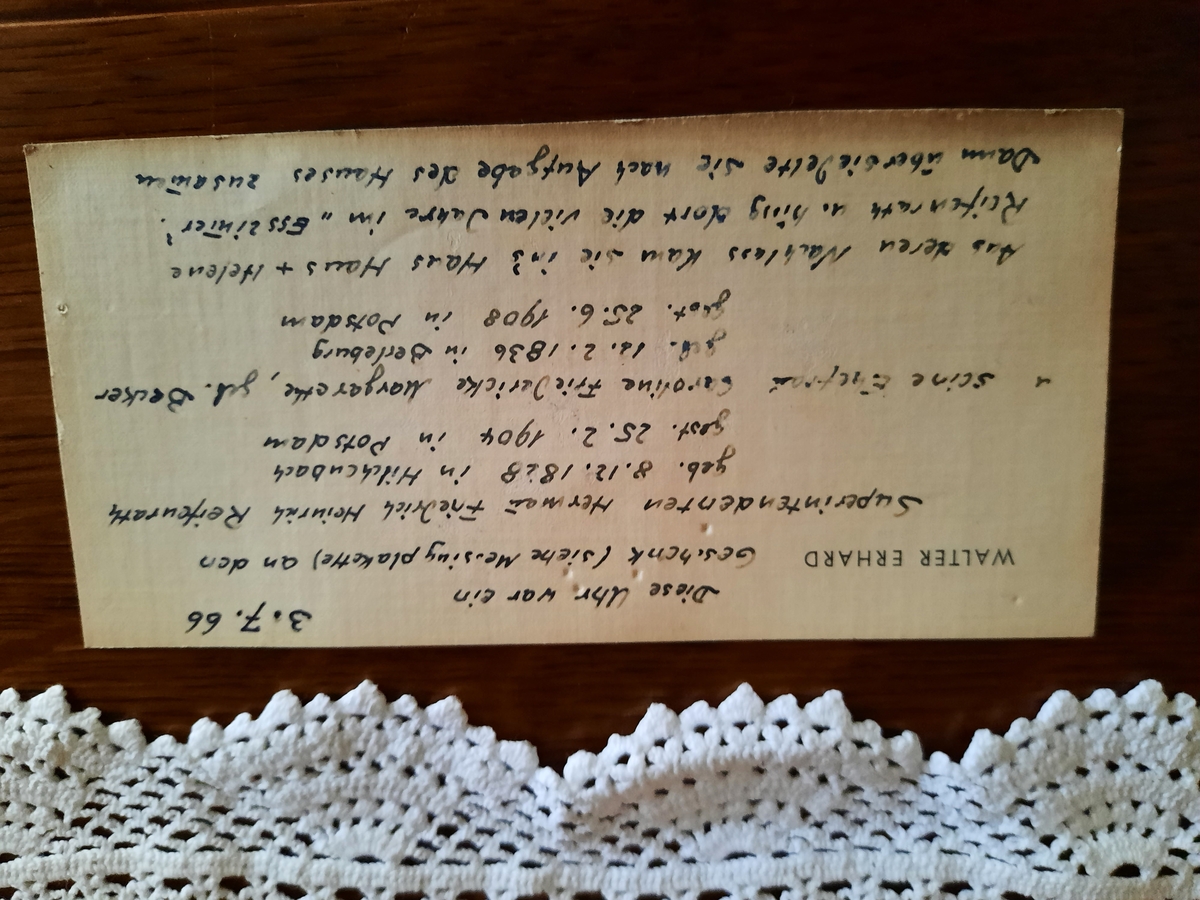 3.7.66
Diese Uhr war ein
WALTER ERHARD Geschenk (siehe Messingplakette) an den
Superintendenten Herman̄ Friedrich Heinrich Reifenrath
geb. 8.12.1828 in Hilchenbach
gest. 25.2.1904 in Potsdam
u seine Ehefrau Caroline Friedericke Margarethe, geb. Becker
geb. 12.2.1836 in Berleburg
gest. 25.6.1908 in Potsdam
Aus deren Nachlass kam sie in's Haus Hans + Helene
Reifenrath u. hing dort die vielen Jahre im „Esszim̄er".
Dann übersiedelte sie nach Aufgabe des Hauses zusam̄en